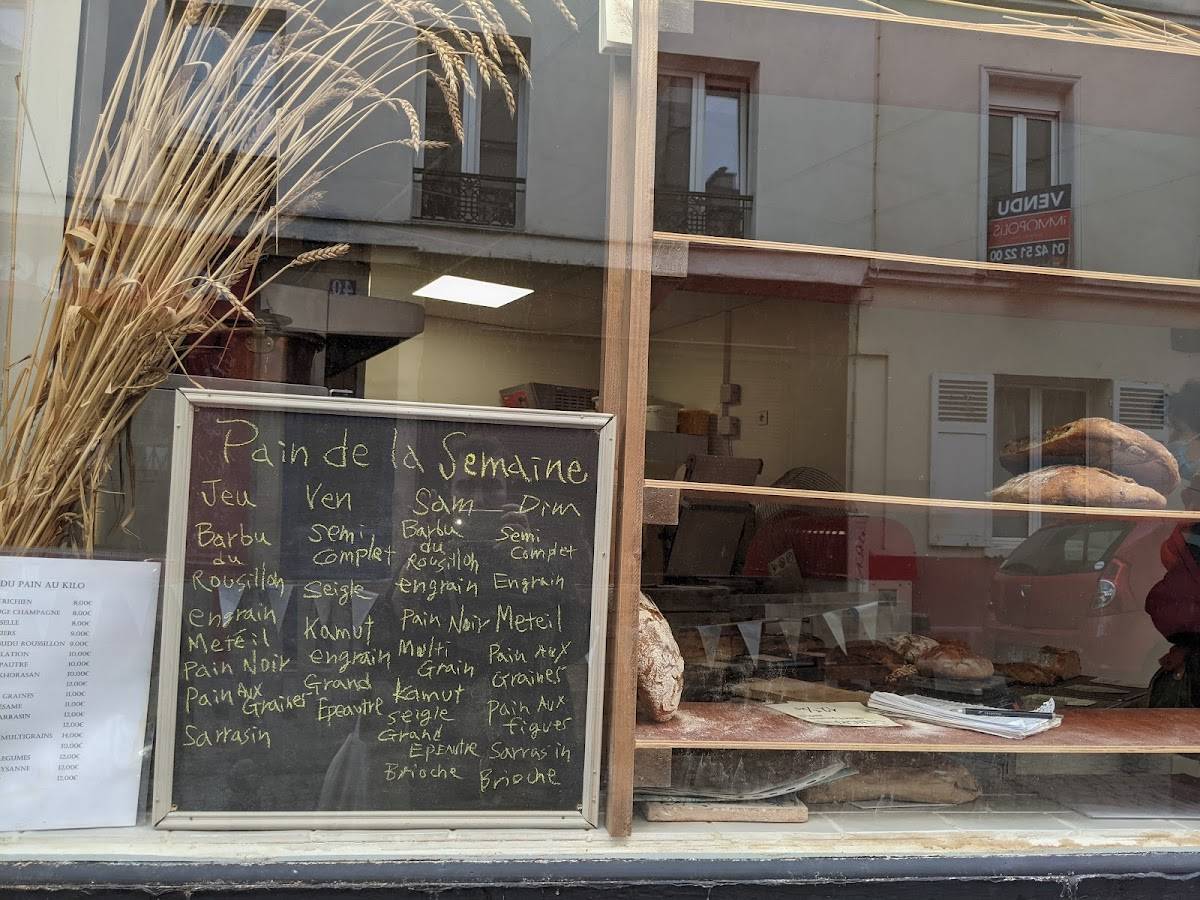 Pain de la Semaine
Jeu
Barbu
du
Rousillon
engrain
Meteil
Pain Noir
Pain Aux
Graines
Sarrasin
Ven
semi
complet
Seigle
Kamut
engrain
Grand
Epeautre
Sam
Barbu
du
Rousillon
engrain
Pain Noir
Multi
Grain
Kamut
seigle
Grand
Epeautre
Brioche
Dim
Semi
Complet
Engrain
Meteil
Pain Aux
Graines
Pain Aux
figues
Sarrasin
Brioche
DU PAIN AU KILO
RICHIEN 8,00€
GE CHAMPAGNE 8,00€
SELLE 8,00€
IERS 9,00€
UDU ROUSSILLON 9,00€
LATION 10,00€
PAUTRE 10,00€
KHORASAN 10,00€
12,00€
GRAINES 11,00€
ESAME 11,00€
ARRASIN 12,00€
12,00€
MULTIGRAINS 14,00€
10,00€
LEGUMES 12,00€
YSANNE 12,00€
12,00€
VENDU
IMMOPOLIS
01 42 51 22 00
40